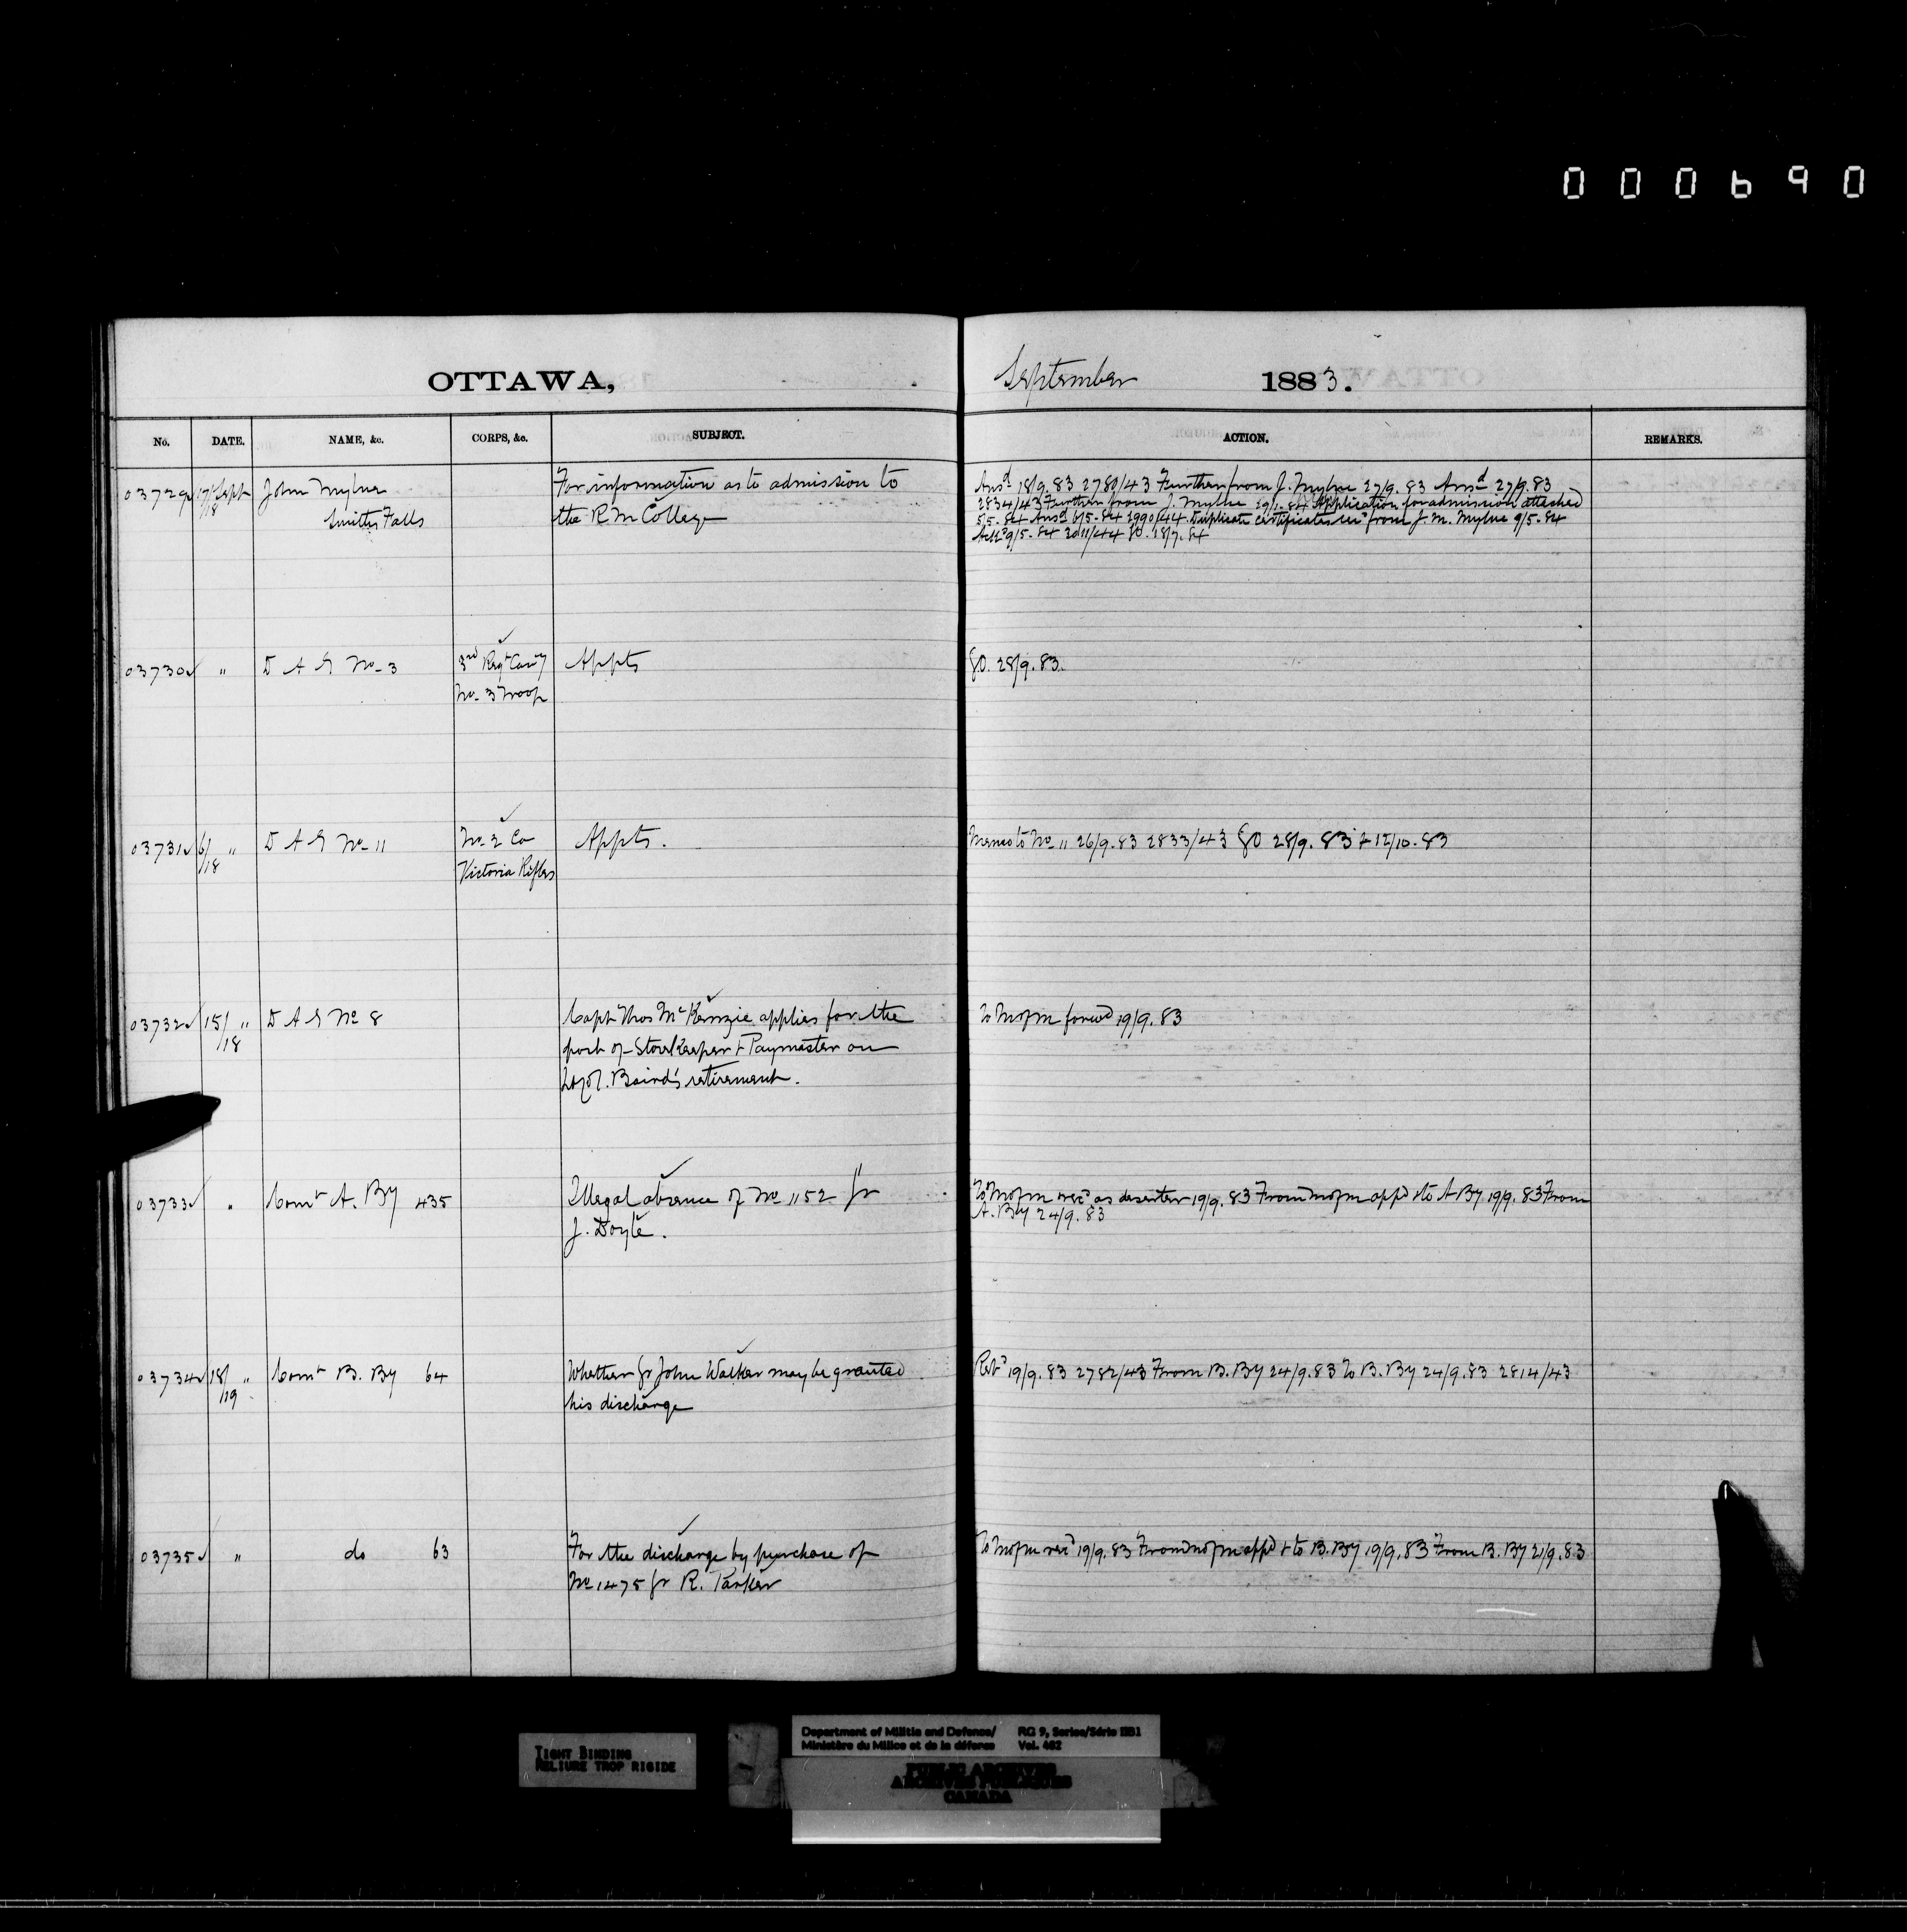 000690
OTTAWA,
September 1883.
No. DATE. NAME, &c. CORPS, &c. SUBJECT. ACTION. REMARKS.
03729 17/18 Sept John Mylne For information as to admission to
Smiths Falls the R M College
Ansd 18/9.83 2780/43 Further from J. Mylne 27/9.83 Ansd 27/9.83
2834/43 Further from J. Mylne 29/1.84 Application for admission attached
5/5.84 Ansd 6/5.84 2990/44 Duplicate certificates recd from J. M. Mylne 9/5.84
9/5.84 3011/44 GO. 18/7.84
03730 " D A G No. 3 3rd Regt Cavy Appts GO. 28/9.83.
No. 3 Troop
03731 6/18 " D A G No 11 No. 2 Co Appts. Memo to No 11 26/9.83 2833/43 GO 28/9.83 & 12/10.83
Victoria Rifles
03732 15/18 " D A G No 8 Capt Thos McKenzie applies for the To MofM forwd 19/9.83
post of Storekeeper & Paymaster on
Lt Col. Baird's retirement.
03733 " Comt A. By 435 Illegal absence of No 1152 Gr
J. Doyle.
To MofM recd as deserter 19/9.83 From MofM appd & to A By 19/9.83 From
A. By 24/9.83
03734 18/19 " Comt B. By 64 Whether Gr John Walker may be granted
his discharge
19/9.83 2782/43 From B. By 24/9.83 To B. By 24/9.83 2814/43
03735 " do 63 For the discharge by purchase of
No 1475 Gr R. Parker
To MofM recd 19/9.83 From MofM appd & to B. By 19/9.83 From B. By 21/9.83
TIGHT BINDING
RELIURE TROP RIGIDE
Department of Militia and Defence/ RG 9, Series/Série IIB1
Ministère du Milice et de la défence Vol. 462
PUBLIC ARCHIVES
ARCHIVES PUBLIQUES
CANADA